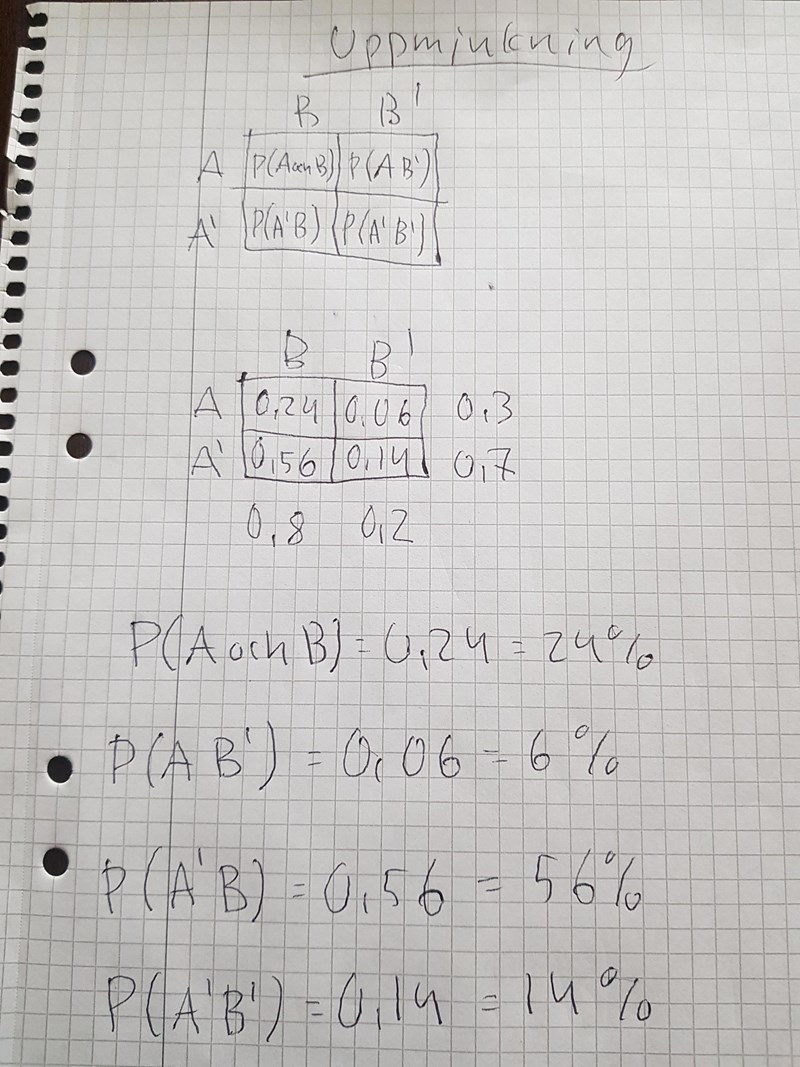 Uppmjukning
B B'
A P(A och B) P(A B')
A' P(A'B) P(A'B')
B B'
A 0,24 0,06 0,3
A' 0,56 0,14 0,7
0,8 0,2
P(A och B) = 0,24 = 24%
P(A B') = 0,06 = 6%
P(A'B) = 0,56 = 56%
P(A'B') = 0,14 = 14%